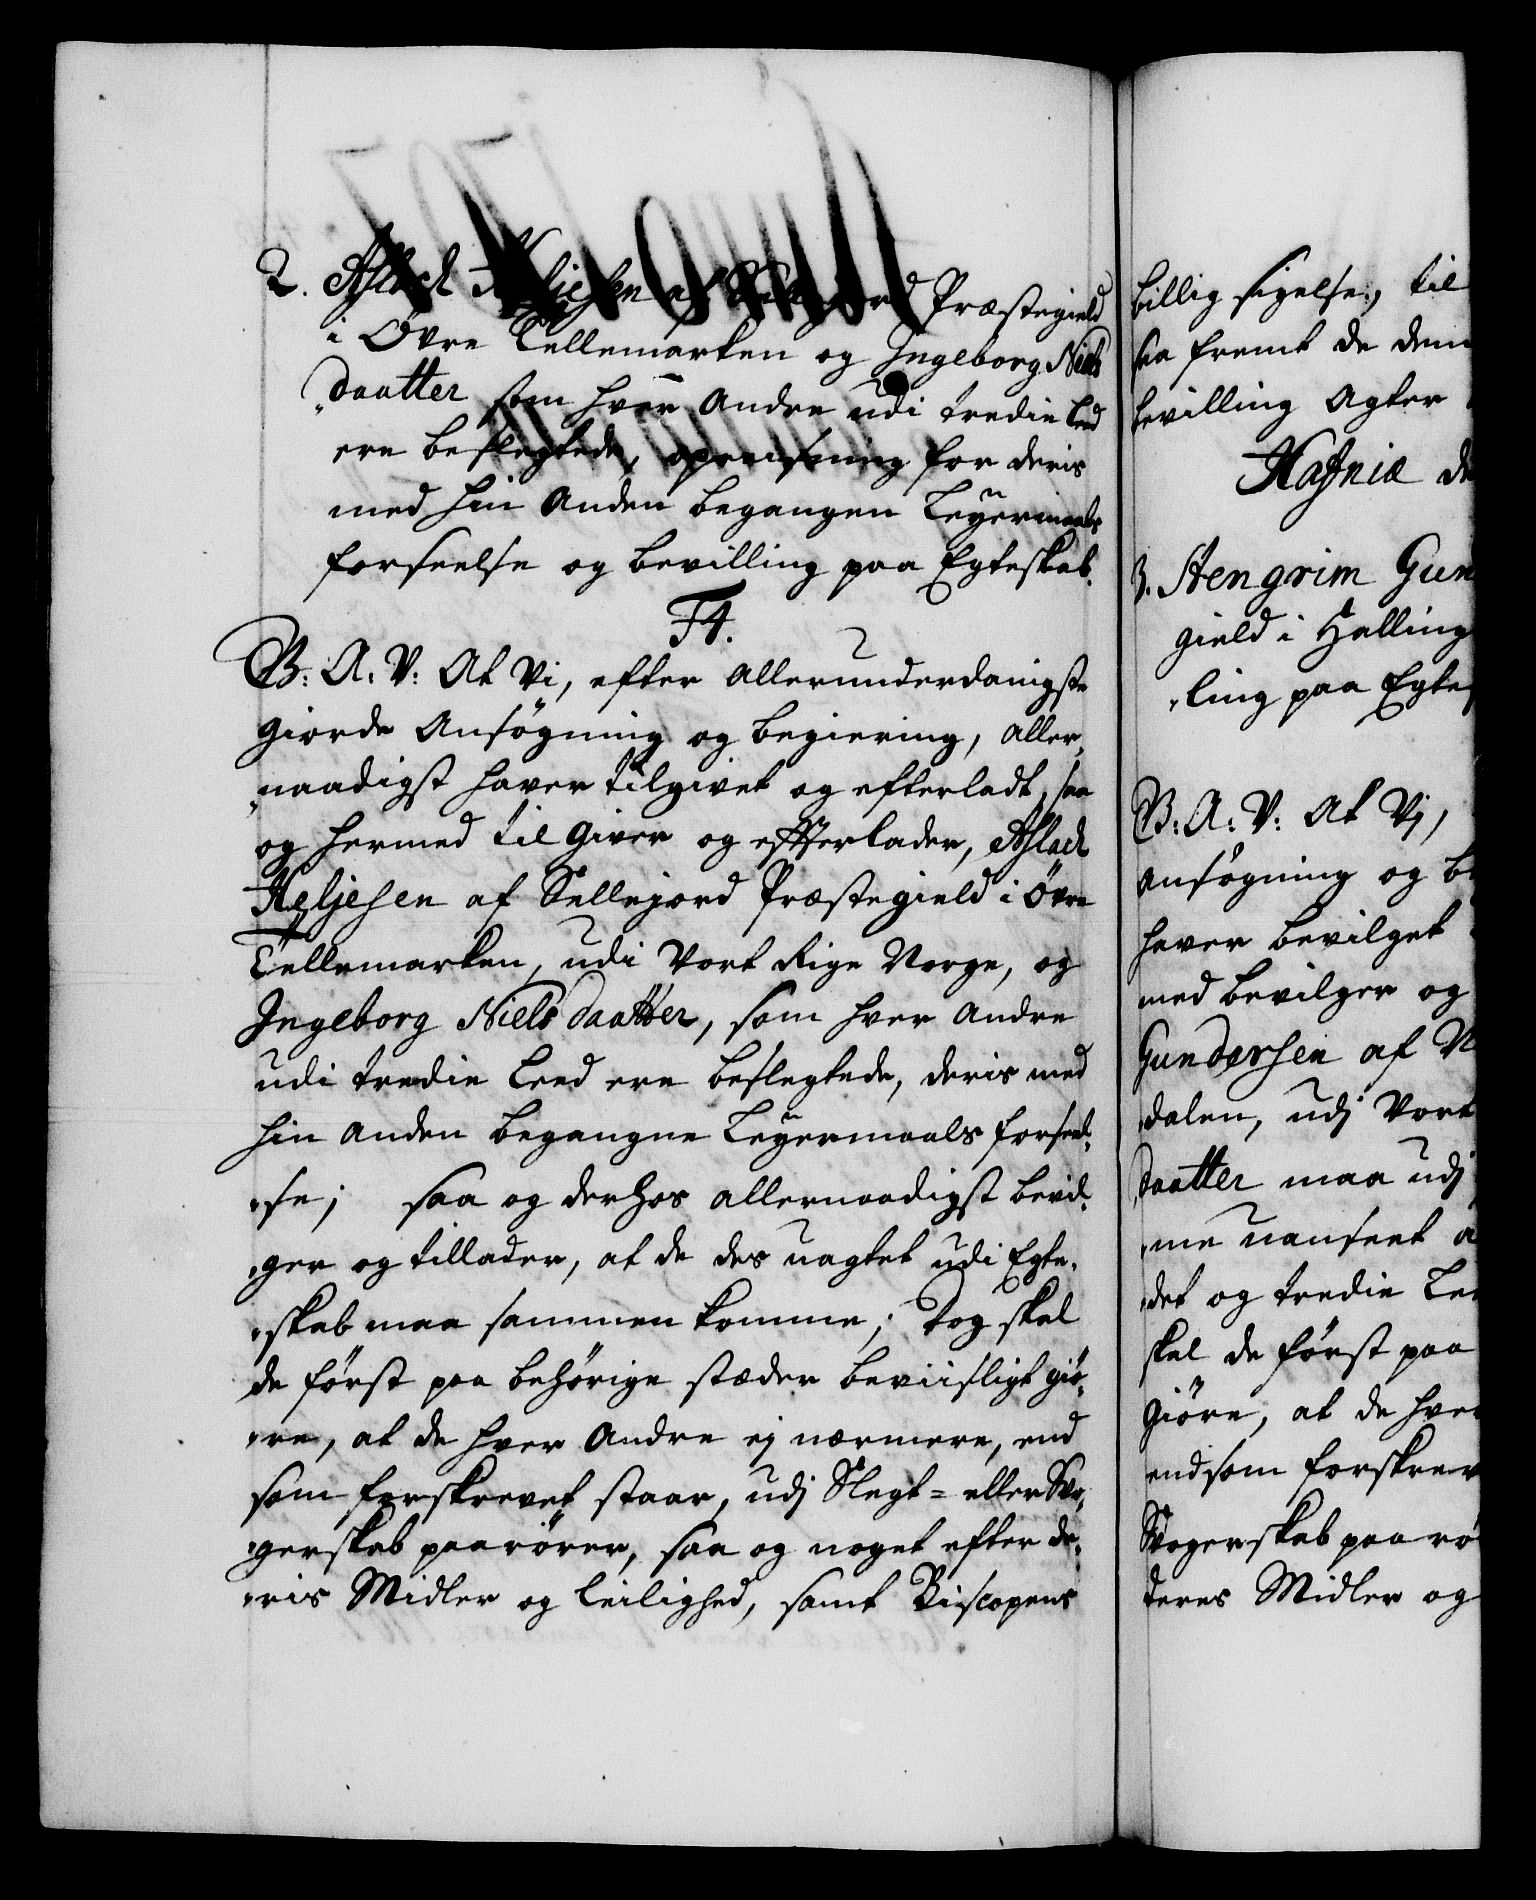 2. Aslach Heljesen af Sellejord Præstegield
i Övre Tellemarken og Ingeborg Niels
„daatter som hver Andre udi tredie Leed
ere beslegtede, opreisning for deris
med hin Anden begangen Leyermaals
forseelse og bevilling paa Egteskab.
F4.
B: A: V: At Vi, efter allerunderdanigste
giorde Ansøgning og begiering, aller„
„naadigst haver tilgivet og efterladt, saa
og hermed til giver og effterlader, Aslach
Heljesen af Sellejord Præstegield i Övre
Tellemarken, udi Vort Rige Norge, og
Ingeborg Nielsdaatter, som hver Andre
udi tredie Leed ere beslegtede, deris med
hin Anden begangne Leyermaals forseel„
„se; saa og derhos allernaadigst bevil„
„ger og tillader, at de des uagtet udi Egte„
„skab maa sammen komme; Dog skal
de först paa behörige stæder beviisligt giö„
„re, at de hver Andre ej nærmere, end
som forskrevet staar, udj Slegt- eller Svo„
„gerskab paarörer, saa og noget efter de„
„ris Midler og Leilighed, samt Biscopens
billig sigelse, til
saa fremt de denn
bevilling Agter
Hafniæ d
3. Stengrim Gun
gield i Halling
„ling paa Egtes
B: A: V: At Vj,
ansøgning og b
haver bevilget
med bevilger og
Gundersen af N
dalen, udj Vort
daatter maa udj
„me uanseet a
„det og tredie Le
skal de först paa
giöre, at de hver
end som forskrev
Svogerskab paarö
deres Midler og